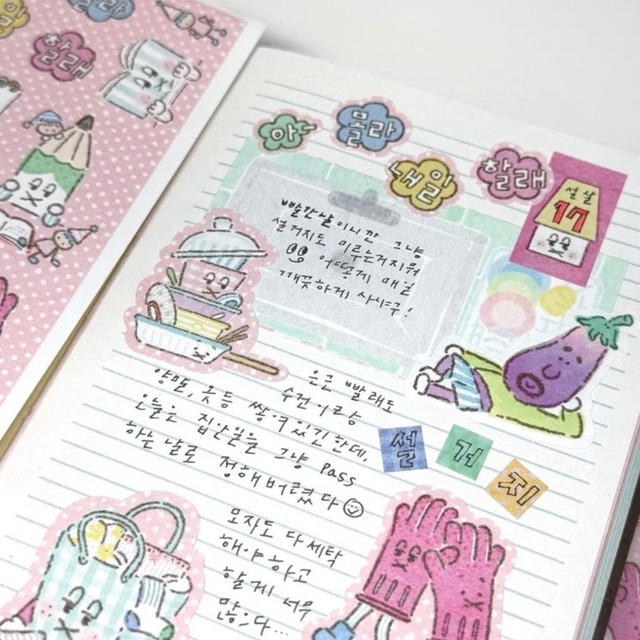 아~
몰라
내일
할래
설날
17
빨간날이니깐 그냥
설거지도 미루는거지뭐
어떻게 매일
깨끗하게 사냐구!
으근 빨래도
수건이랑
양말, 옷등 쌓여있긴 한데,
오늘은 집안일을 그냥 pass
하는 날로 정해버렸다
설거지
모자도 다 세탁
해야하고
할게 너무
많다...
몰라
할래